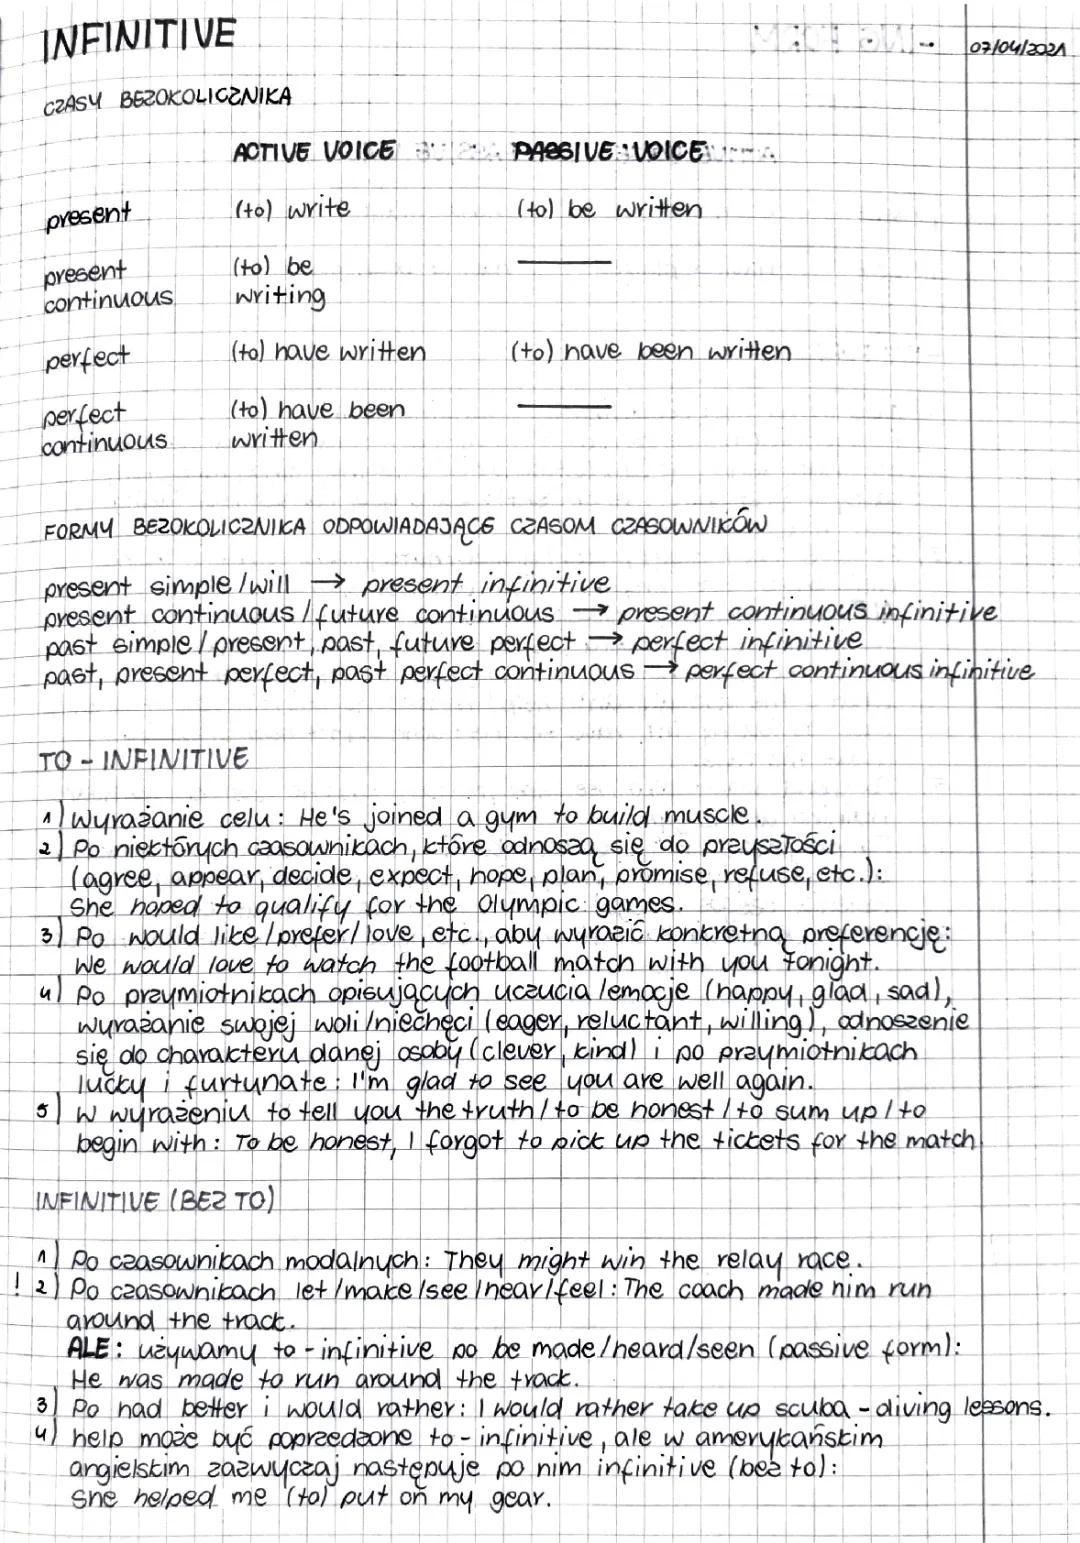 INFINITIVE
07/04/2021
CZASY BEZOKOLICZNIKA
ACTIVE VOICE PASSIVE VOICE
present (to) write (to) be written
present (to) be
continuous writing
perfect (to) have written (to) have been written
perfect (to) have been
continuous written
FORMY BEZOKOLICZNIKA ODPOWIADAJĄCE CZASOM CZASOWNIKÓW
present simple/will → present infinitive
present continuous/future continuous → present continuous infinitive
past simple/present, past, future perfect → perfect infinitive
past, present perfect, past perfect continuous → perfect continuous infinitive
TO - INFINITIVE
1) Wyrażanie celu: He's joined a gym to build muscle.
2) Po niektórych czasownikach, które odnoszą się do przyszłości
(agree, appear, decide, expect, hope, plan, promise, refuse, etc.):
She hoped to qualify for the Olympic games.
3) Po would like/prefer/love, etc., aby wyrazić konkretną preferencję:
We would love to watch the football match with you tonight.
4) Po przymiotnikach opisujących uczucia/emocje (happy, glad, sad),
wyrażanie swojej woli/niechęci (eager, reluctant, willing), odnoszenie
się do charakteru danej osoby (clever, kind) i po przymiotnikach
lucky i furtunate: I'm glad to see you are well again.
5) W wyrażeniu to tell you the truth/to be honest/to sum up/to
begin with: To be honest, I forgot to pick up the tickets for the match
INFINITIVE (BEZ TO)
1) Po czasownikach modalnych: They might win the relay race.
! 2) Po czasownikach let/make/see/hear/feel: The coach made him run
around the track.
ALE: używamy to-infinitive po be made/heard/seen (passive form):
He was made to run around the track.
3) Po had better i would rather: I would rather take up scuba-diving lessons.
4) help może być poprzedzone to-infinitive, ale w amerykańskim
angielskim zazwyczaj następuje po nim infinitive (bez to):
She helped me (to) put on my gear.